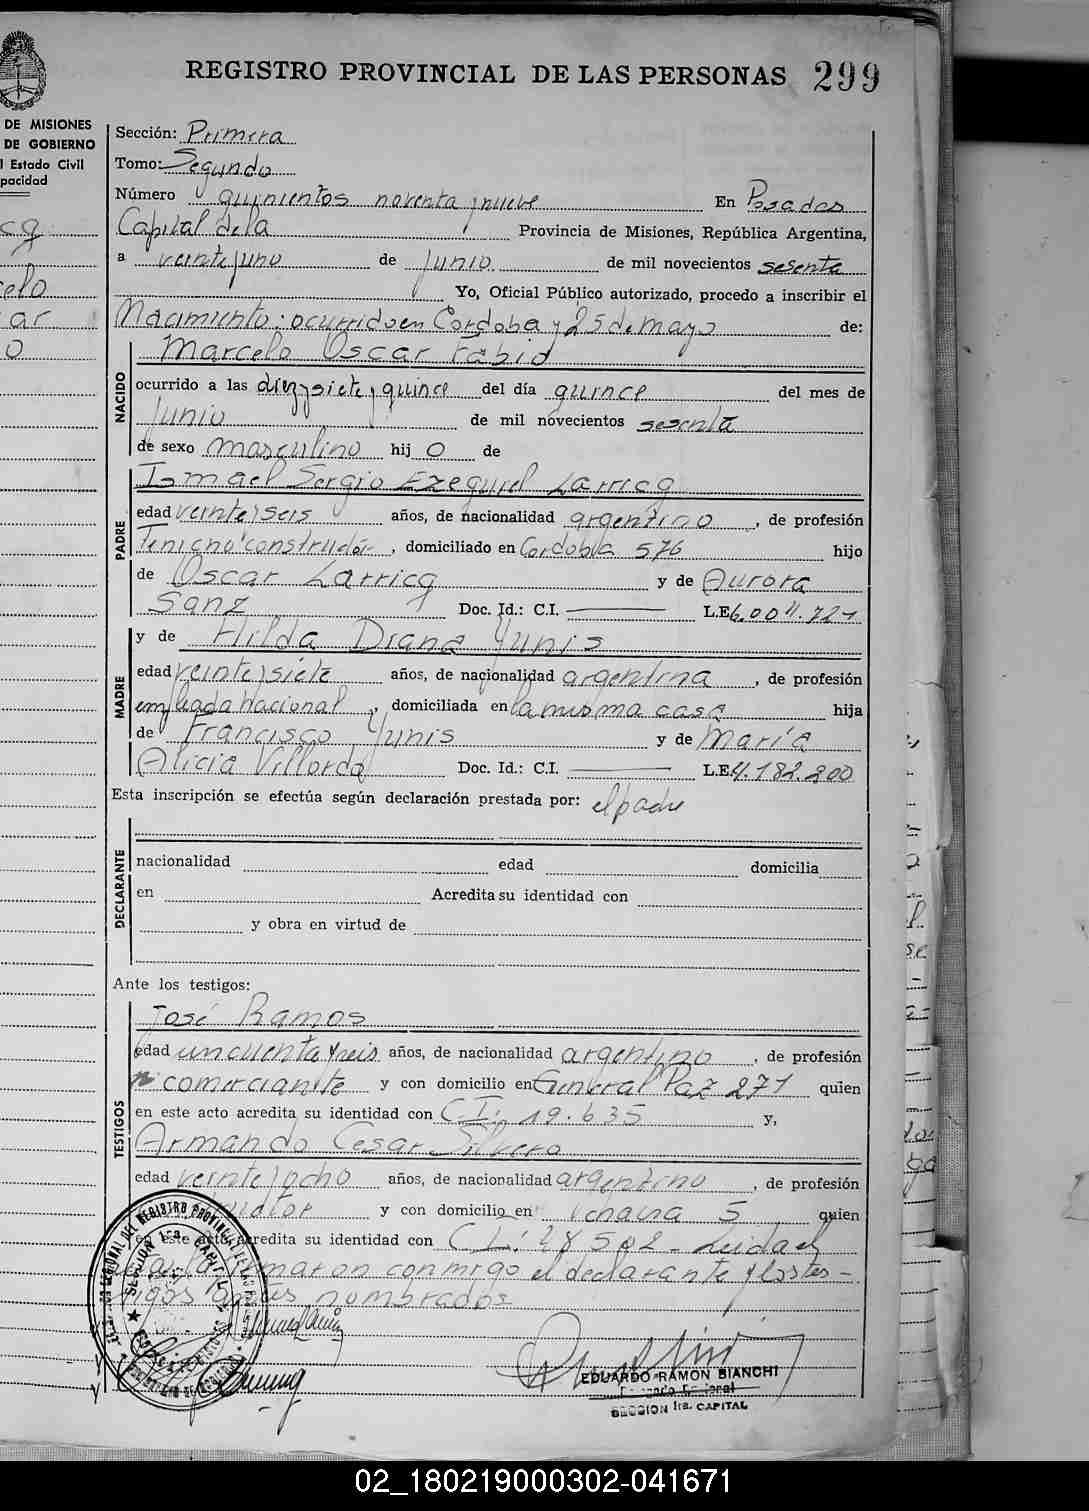 REGISTRO PROVINCIAL DE LAS PERSONAS 299
DE MISIONES
DE GOBIERNO
l Estado Civil
pacidad
Sección: Primera
Tomo: Segundo
Número quinientos noventa y nueve En Posadas
Capital de la Provincia de Misiones, República Argentina,
a veintejuno de Junio de mil novecientos sesenta
Yo, Oficial Público autorizado, procedo a inscribir el
Nacimiento: ocurrido en Cordoba y 25 de mayo de:
NACIDO
Marcelo Oscar Fabio
ocurrido a las diezysiete y quince del día quince del mes de
Junio de mil novecientos sesenta
de sexo masculino hij o de
PADRE
Ismael Sergio Ezequiel Larricq
edad veinteiseis años, de nacionalidad argentino, de profesión
constructor, domiciliado en Cordoba 576 hijo
de Oscar Larricq y de Aurora
Sanz Doc. Id.: C.I. L.E.
MADRE
y de Hilda Diana Yunis
edad veintejsiete años, de nacionalidad argentina, de profesión
empleada nacional, domiciliada en la misma casa hija
de Francisco Yunis y de María
Alicia Villorda Doc. Id.: C.I. L.E. 4.182.200
Esta inscripción se efectúa según declaración prestada por: el padre
DECLARANTE
nacionalidad edad domicilia
en Acredita su identidad con
y obra en virtud de
Ante los testigos:
TESTIGOS
José Ramos
edad cincuenta y seis años, de nacionalidad argentino, de profesión
comerciante y con domicilio en General Paz 271 quien
en este acto acredita su identidad con C.I: 19.635 y,
Armando Cesar Silvero
edad veintejocho años, de nacionalidad argentino, de profesión
y con domicilio en 5 quien
en este acto acredita su identidad con C.I: Leida el
conmigo el declarante y los tes-
tigos antes nombrados
EDUARDO RAMON BIANCHI
SECCION 1ra. CAPITAL
02_180219000302-041671